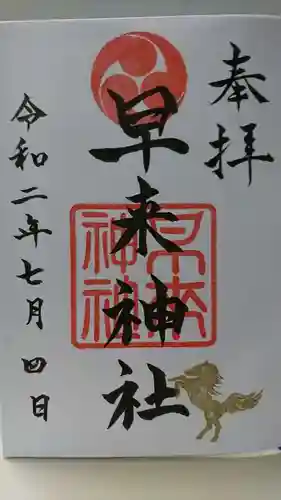 奉拝
早来神社
早来神社
令和二年七月四日